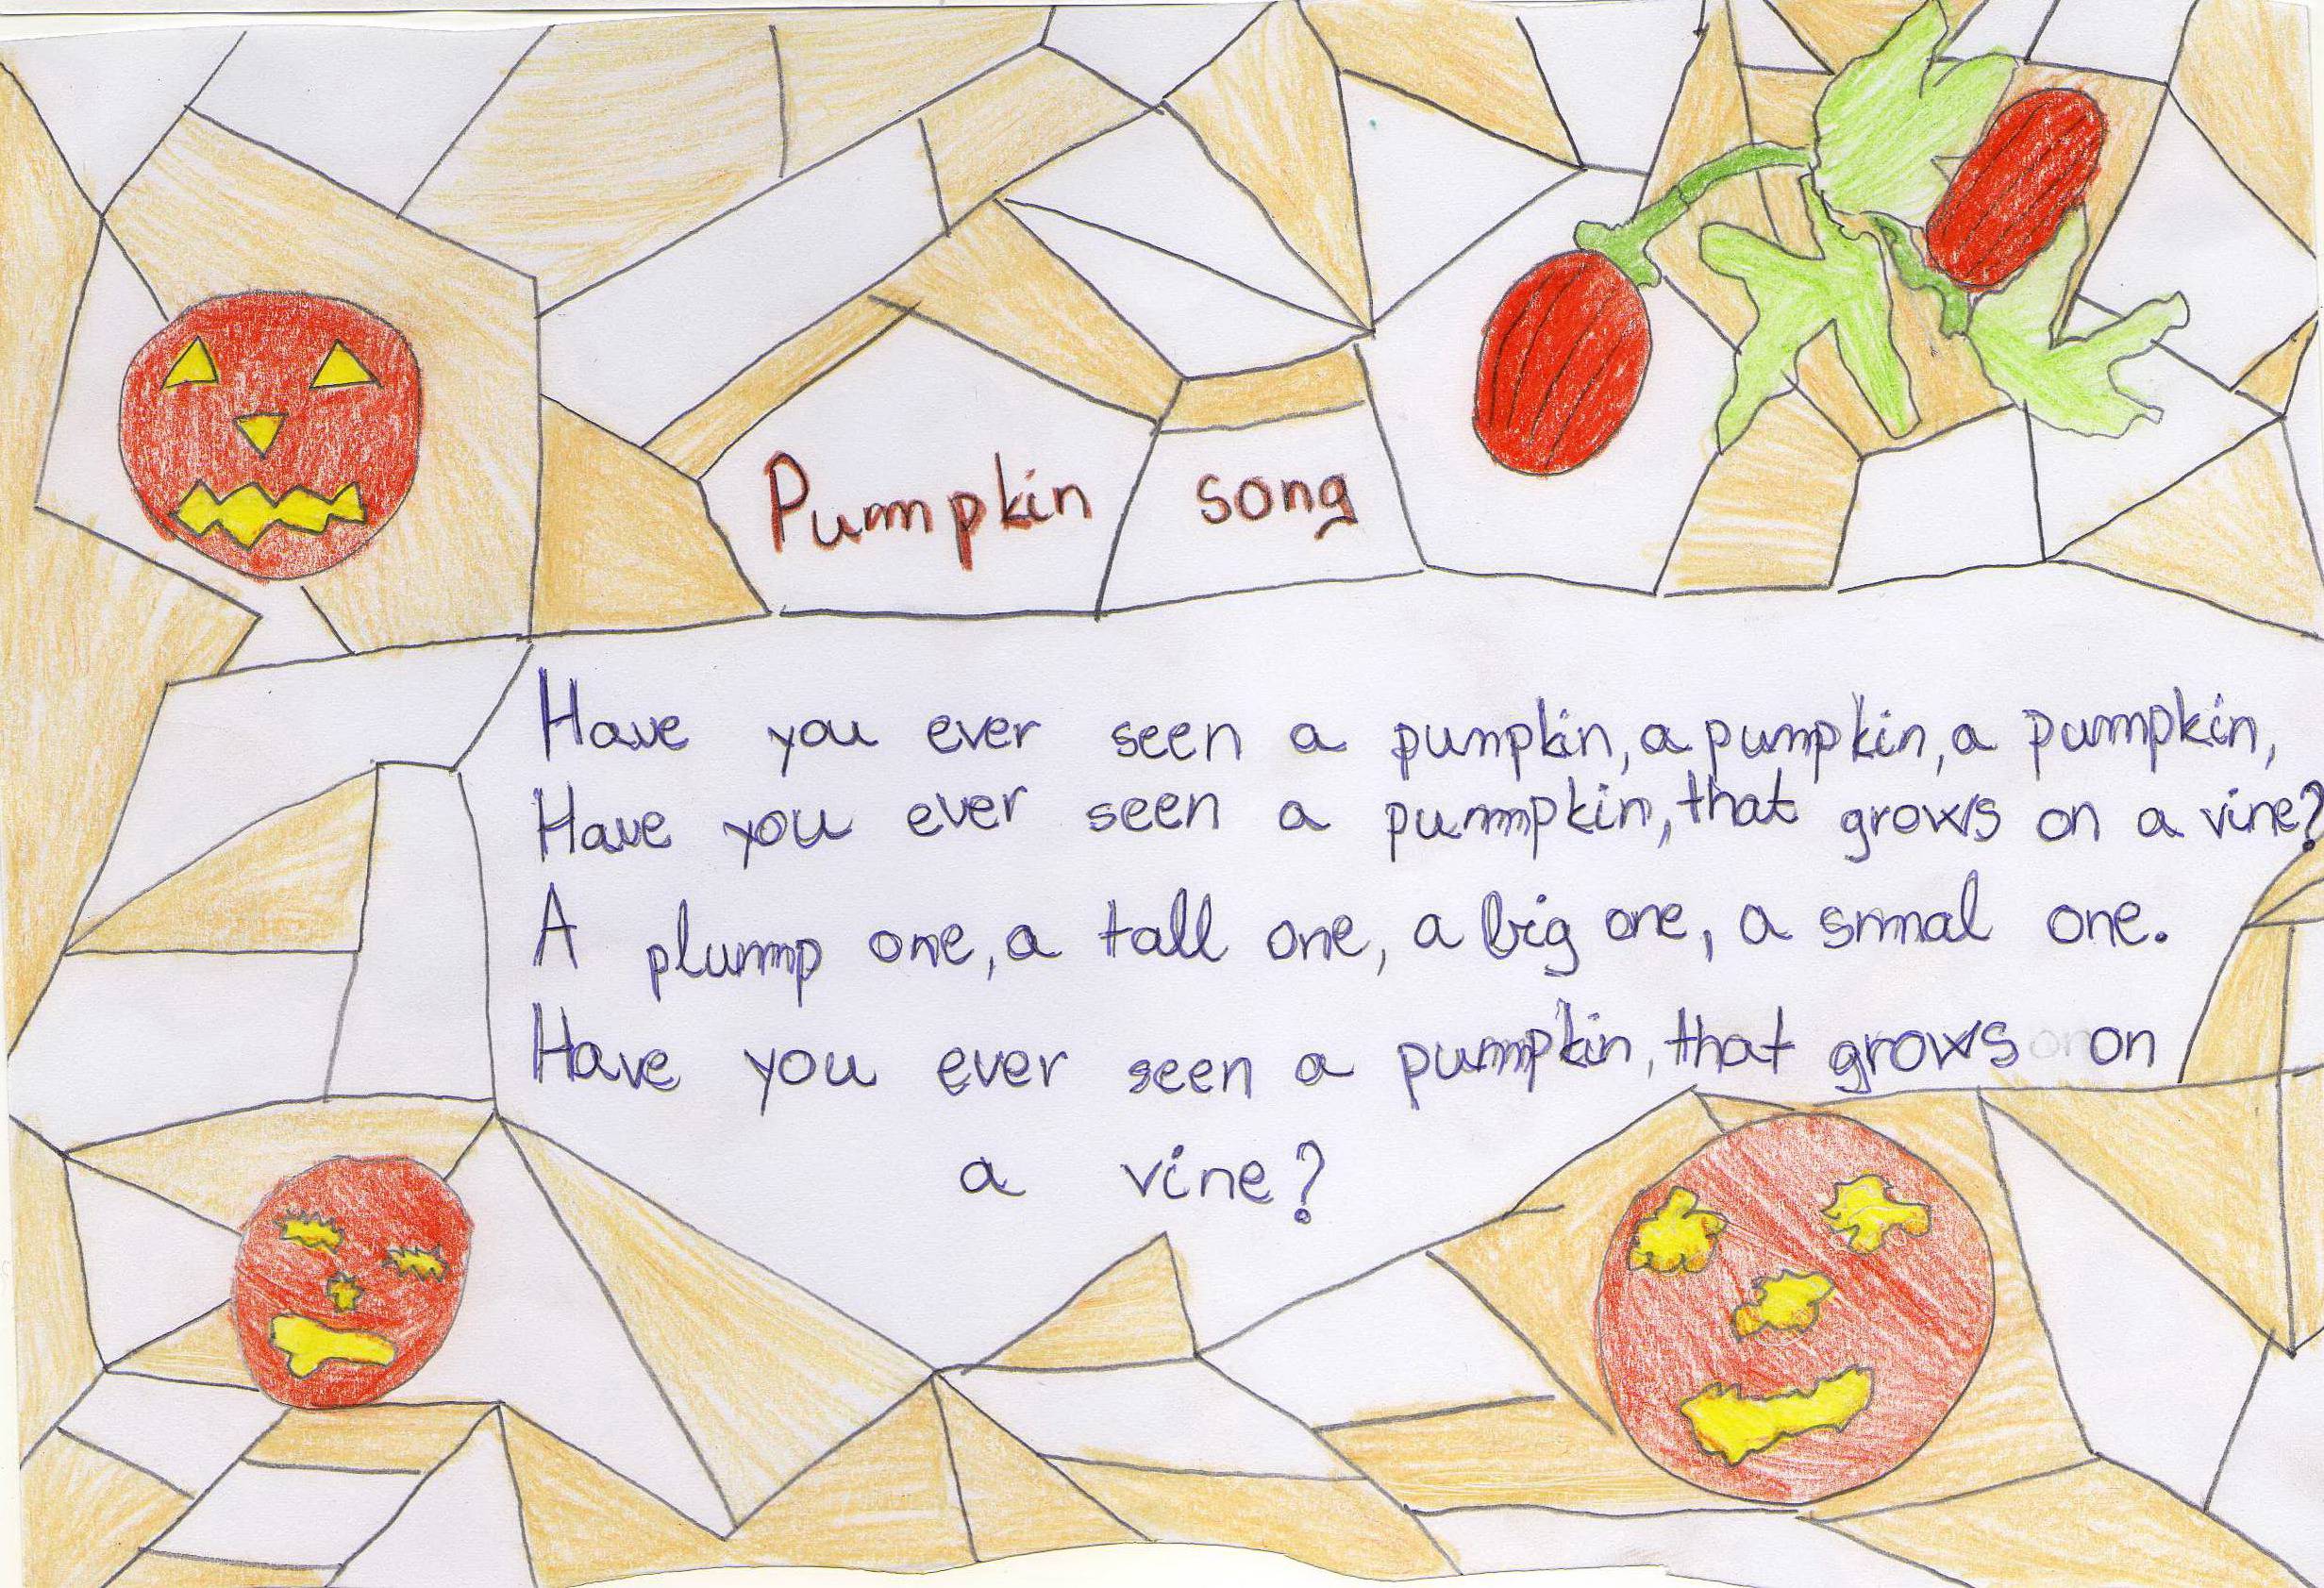 Pumpkin song
Have you ever seen a pumpkin, a pumpkin, a pumpkin,
Have you ever seen a pumpkin, that grows on a vine?
A plump one, a tall one, a big one, a smal one.
Have you ever seen a pumpkin, that grows on
a vine?